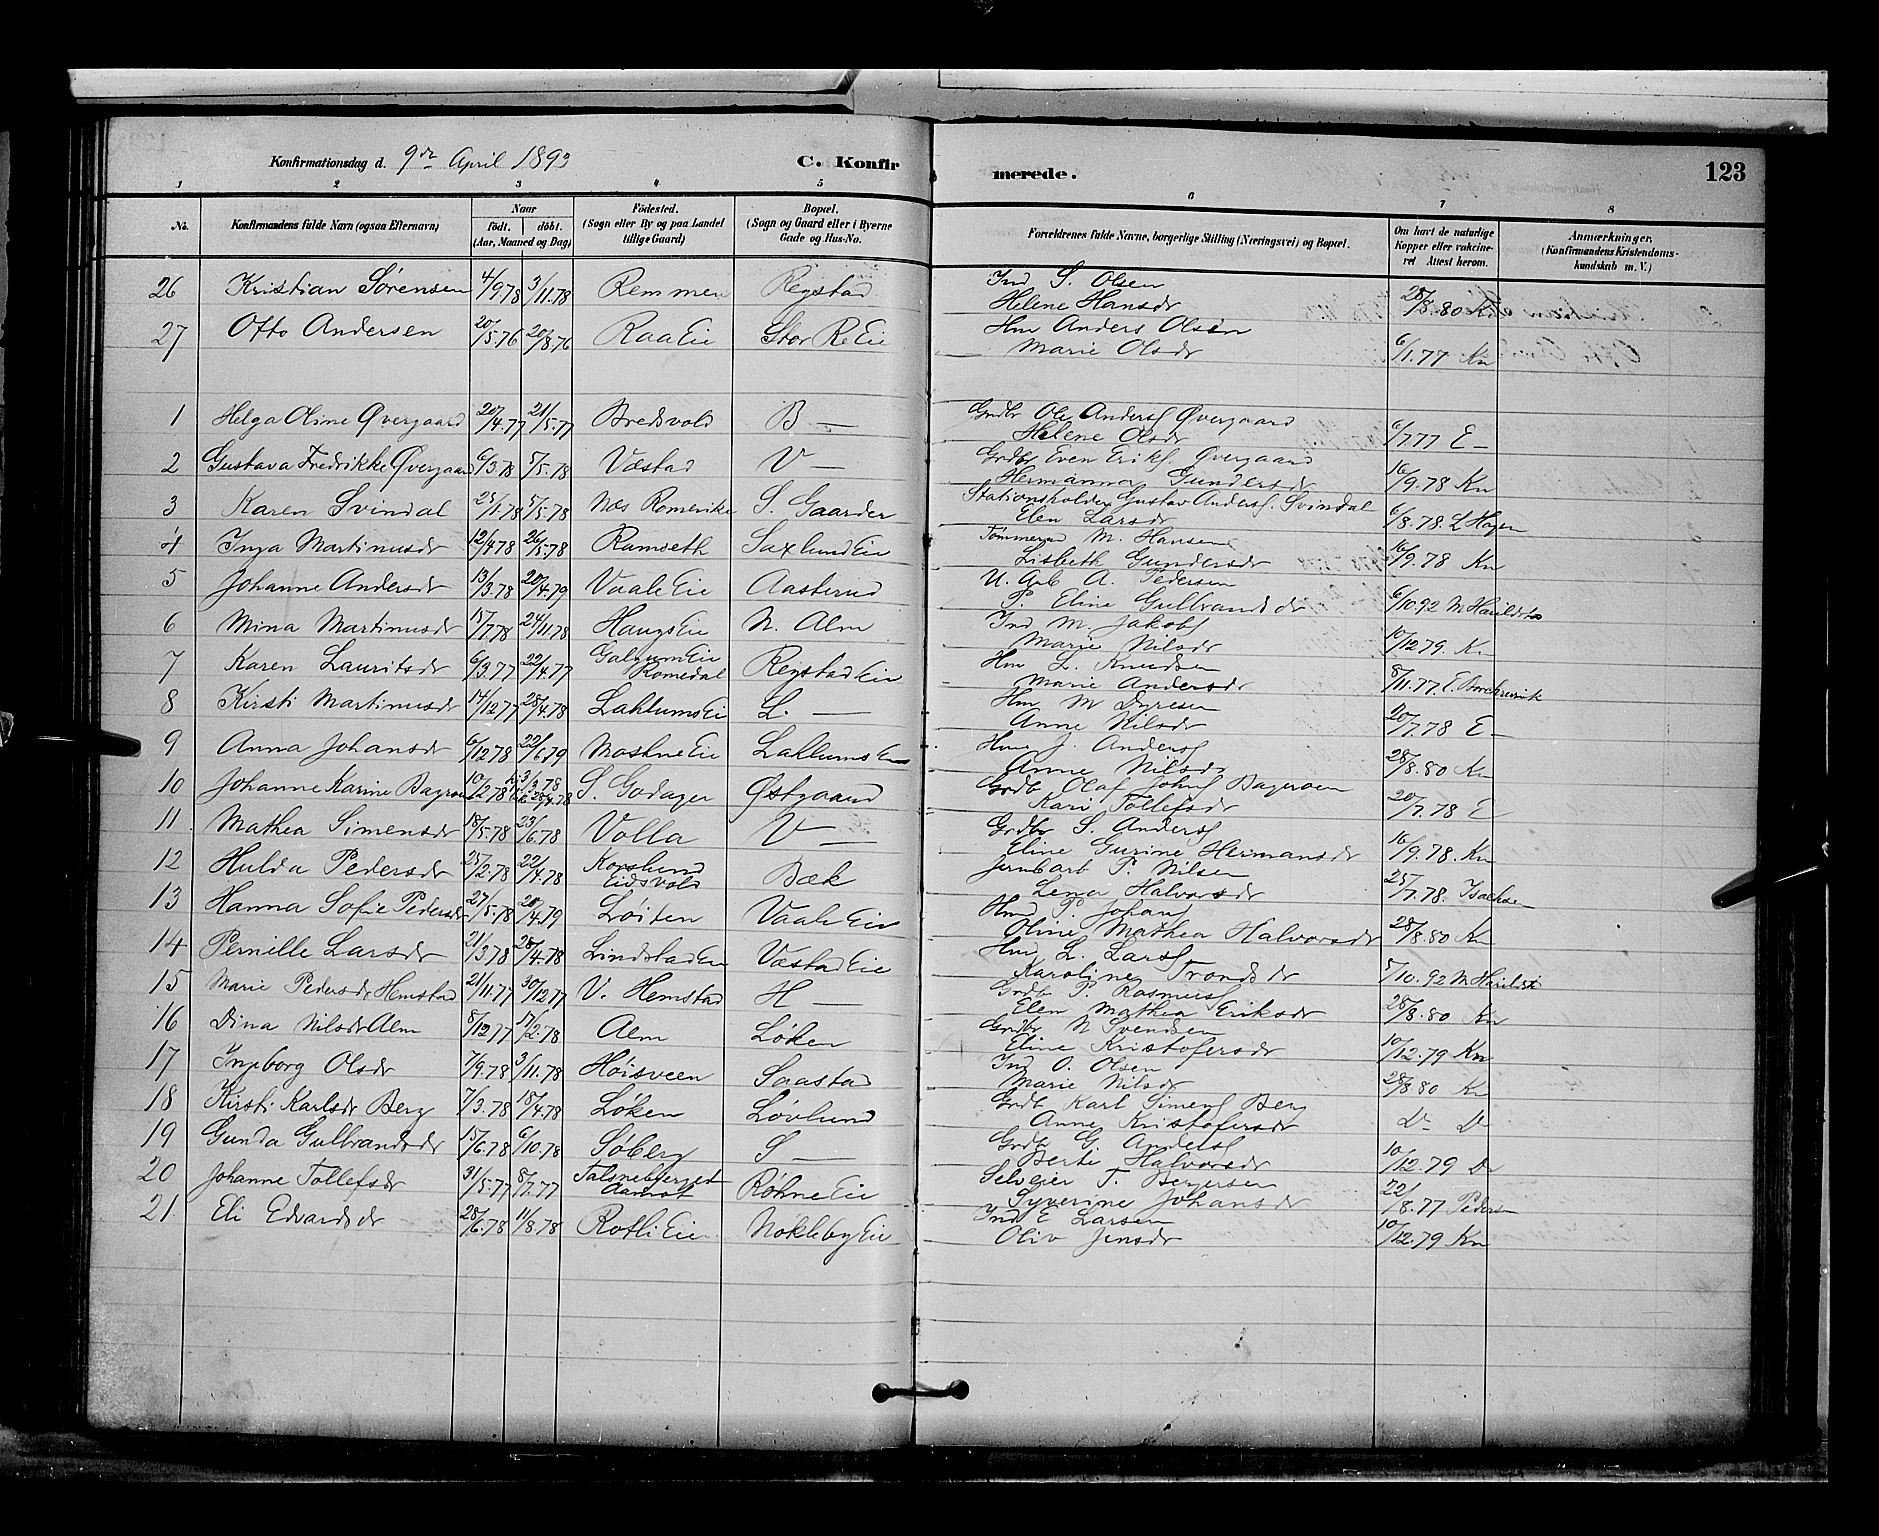 Konfirmationsdag d. 9de April 1893 C. Konfir merede. 123
1 2 3 4 5 6 7 8
No. Konfirmandens fulde Navn (ogsaa Efternavn) Naar født. døbt. (Aar, Maaned og Dag) Fødested. (Sogn eller By og paa Landet tillige Gaard) Bopæl. (Sogn og Gaard eller i Byerne Gade og Hus-No. Forældrenes fulde Navne, borgerlige Stilling (Næringsvei) og Bopæl. Om havt de naturlige Kopper eller vakcineret Attest herom. Anmærkninger. (Konfirmandens Kristendomskundskab m. V.)
26 Kristian Sørensen 4/9.78 3/11.78 Remmen Regstad Ind S. Olsen Helene Hansdr 28/8.80 Kn
27 Otto Andersen 20/5.76 20/8.76 Raa Eie Stor Re Eie Hm Anders Olsen Marie Olsdr 6/1.77 Kn
1 Helga Oline Øvergaard 20/4.77 21/5.77 Bredsvold B — Grdbr Ole Anders Øvergaard Helene Olsdr 6/7.77 E —
2 Gustava Fredrikke Øvergaard 6/3.78 5/5.78 Væstad V — Grdbr Even Eriks. Øvergaard Hermanna Gundersdr 16/9.78 Kn
3 Karen Svindal 23/1.78 5/5.78 Næs Romerike S. Gaarder Stationsholder Gustav Anders. Svindal Elen Larsdr 6/8.78. L Hagen
4 Inga Martinusdr 12/4.78 26/5.78 Ramseth Saxlund Eie Tømmermd M. Hansen Lisbeth Gundersdr 16/9.78 Kn
5 Johanne Andersdr 13/3.78 20/4.79 Vaale Eie Aasterud U. Arb A. Pedersen P. Eline Gulbrandsdr 6/10.92
6 Mina Martinusdr 17/7.78 24/11.78 Haugs Eie N. Alm Ind M. Jakobs Marie Nilsdr 10/12.79. Kn
7 Karen Lauritsdr 6/3.77 22/4.77 Romedal Regstad Eie Hm L. Knudsen Marie Andersdr 8/11.77. E. Borchrevink
8 Kirsti Martinusdr 14/12.77 28/4.78 Lahlums Eie L. — Hm M Dyresen Anne Nilsdr 20/7.78 E —
9 Anna Johansdr 6/12.78 22/6.79 Mostue Eie Lahlums Eie Hm J. Anders Anne Nilsdr 28/8.80 Kn
10 Johanne Karine Bagroen 10/2.78 S. Godager Østgaard Grdbr Olaf Johns Bageroen Kari Tollefsdr 20/7.78 E
11 Mathea Simensdr 18/5.78 23/6.78 Volla V — Grdbr S. Anders Eline Gurine Hermansdr 16/9.78. Kn
12 Hulda Pedersdr 25/2.78 22/4.78 Korslund Eidsvold Bæk Jernbarb P. Nilsen Lena Halvorsdr 25/7.78. Isachsen
13 Hanna Sofie Pedersdr 27/5.78 20/4.79 Løiten Vaale Eie Hmd P. Johans Oline Mathea Halvorsdr 28/8.80 Kn
14 Pernille Larsdr 21/3.78 28/4.78 Lindstad Eie Væstad Eie Hm L. Lars Karoline Trondsdr 5/10.92
15 Marie Pedersdr Hemstad 21/11.77 30/12.77 V. Hemstad H — Grdb P. Rasmus Elen Mathea Eriksdr 28/8.80 Kn
16 Dina Nilsdr Alm 8/12.77 17/2.78 Alm Løken Grdbr N Svendsen Eline Kristofersdr 10/12.79 Kn
17 Ingeborg Olsdr 7/9.78 3/11.78 Høisveen Saastad Ind O. Olsen Marie Nilsdr 28/8.80 Kn
18 Kirsti Karlsdr Berg 7/3.78 18/4.78 Løken Løvlund Grdb Karl Simens Berg Anne Kristofersdr Do Do
19 Gunda Gulbrandsdr 15/6.78 6/10.78 Søberg S — Grdb G. Anders Berte Halvorsdr 10/12.79 Do
20 Johanne Tollefsdr 31/5.77 8/7.77 Aamot Røhne Eie Selveier T. Bergersen Syverine Johansdr 22/8.77 Pedersen
21 Eli Edvardsdr 28/6.78 11/8.78 Rotli Eie Nøkleby Eie Ind E Larsen Oliv Jensdr 10/12.79 Kn